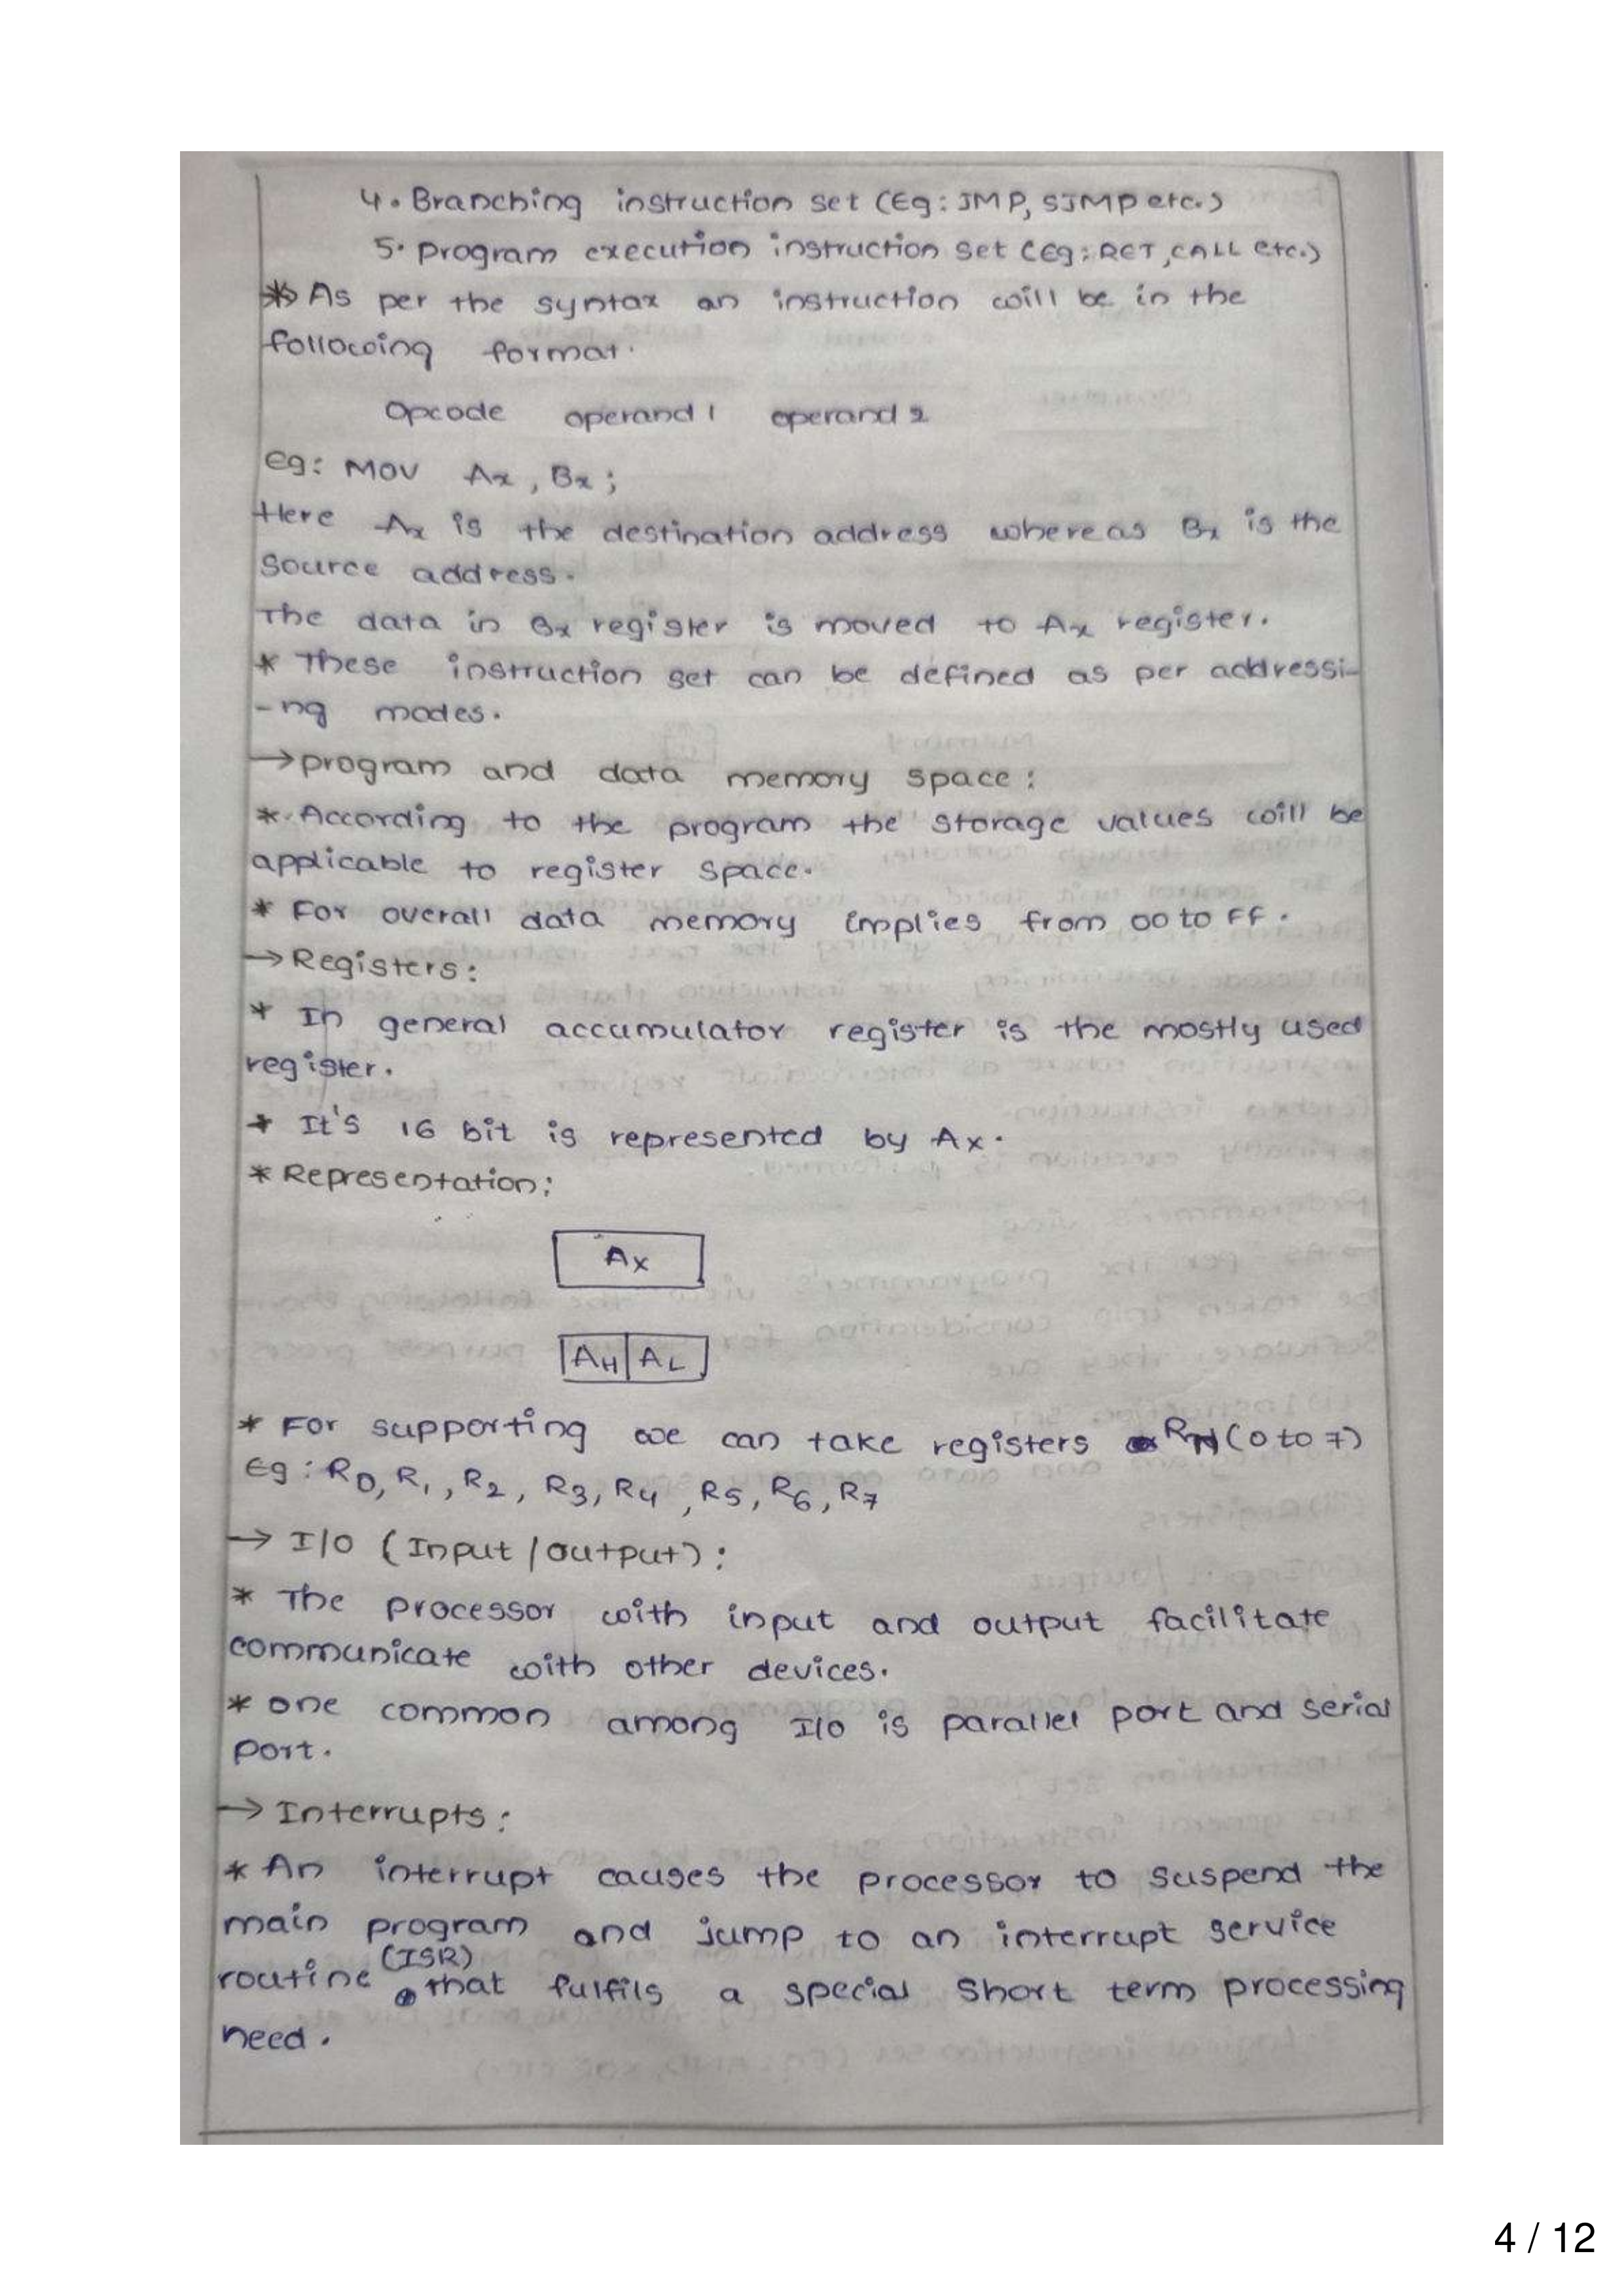 4. Branching instruction set (Eg: JMP, SJMP etc.)
5. program execution instruction set (Eg: RET, CALL etc.)
* As per the syntax an instruction will be in the
following format.
Opcode operand 1 operand 2
eg: MOV Ax, Bx;
Here Ax is the destination address whereas Bx is the
source address.
The data in Bx register is moved to Ax register.
* These instruction set can be defined as per addressi-
-ng modes.
→ program and data memory space:
* According to the program the storage values will be
applicable to register space.
* For overall data memory implies from 00 to FF.
→ Registers:
* In general accumulator register is the mostly used
register.
* It's 16 bit is represented by Ax.
* Representation:
Ax
AH AL
* For supporting we can take registers RN (0 to 7)
Eg: R0, R1, R2, R3, R4, R5, R6, R7
→ I/O (Input/output):
* The processor with input and output facilitate
communicate with other devices.
* one common among I/O is parallel port and serial
port.
→ Interrupts:
* An interrupt causes the processor to suspend the
main program and jump to an interrupt service
routine (ISR) that fulfils a special short term processing
need.
4 / 12